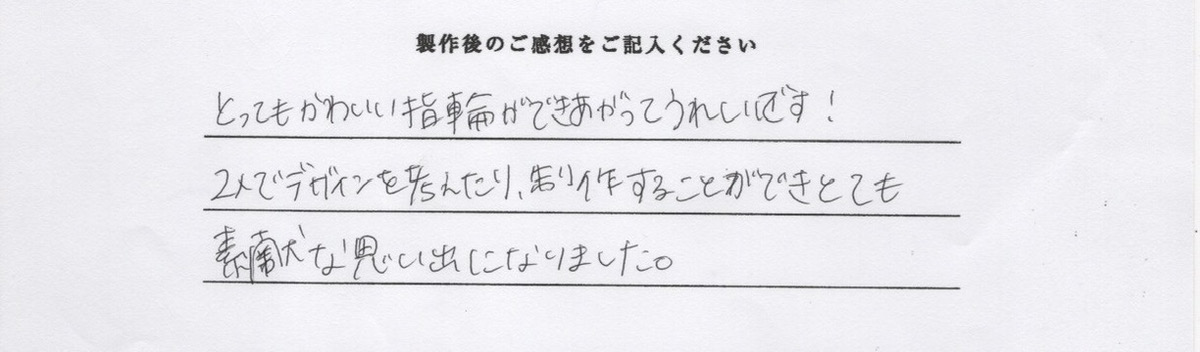 製作後のご感想をご記入ください
とってもかわいい指輪ができあがってうれしいです!
2人でデザインを考えたり、制作することができとても
素敵な思い出になりました。